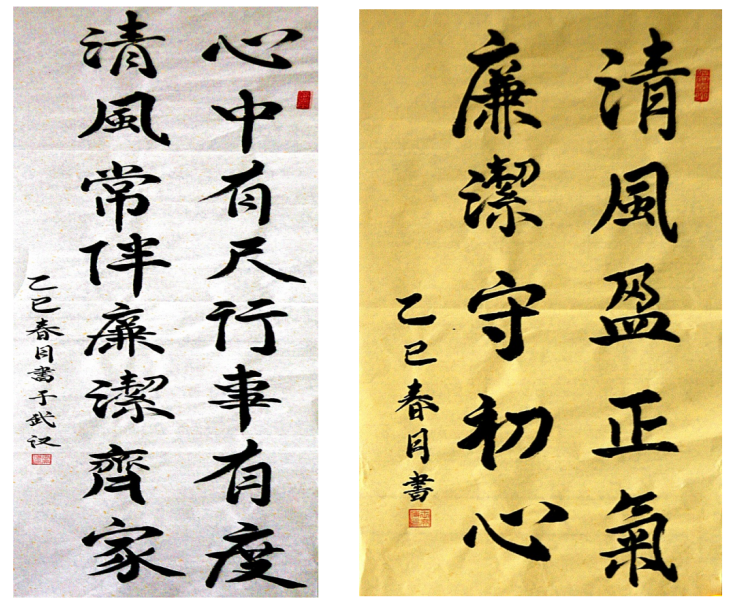 心中有尺行事有度
清風常伴廉潔齊家
乙巳春月書于武汉
清風盈正氣
廉潔守初心
乙巳春月書